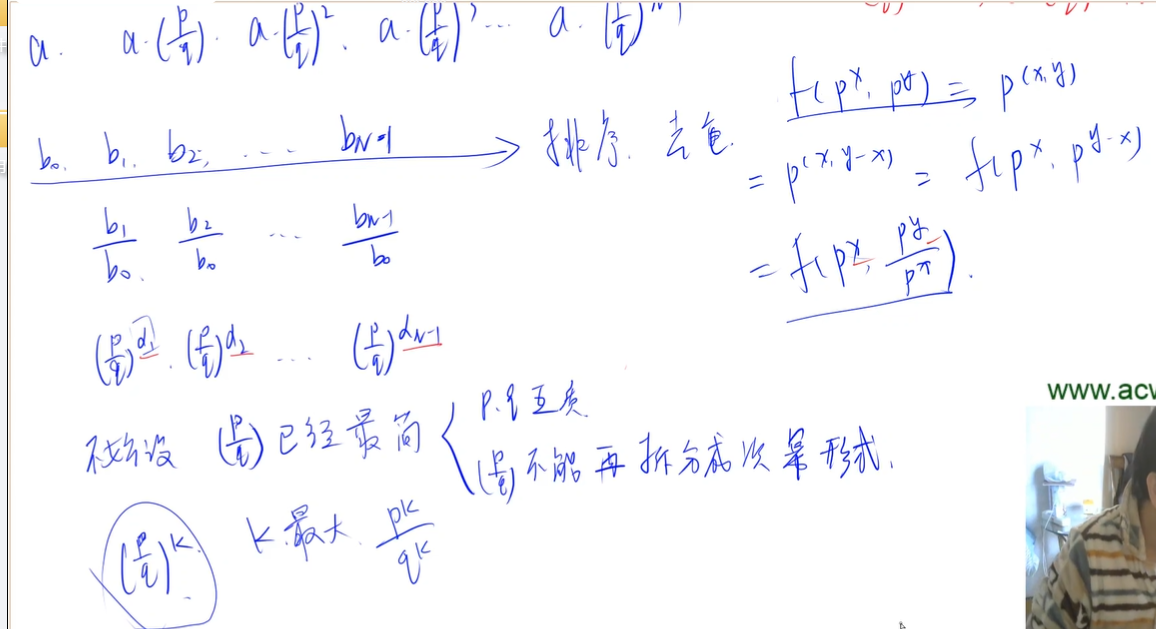 a. a·(p/q). a·(p/q)^2. a·(p/q)^3 ... a·(p/q)^N-1
b0. b1. b2, ... bN-1 → 排序. 去重.
b1/b0. b2/b0 ... bN-1/b0
(p/q)^α1. (p/q)^α2 ... (p/q)^αN-1
不妨设 (p/q) 已经最简 { p.q互质
(p/q) 不能再拆分成次幂形式.
(p/q)^k. k最大. p^k/q^k
f(p^x, p^y) = p^(x,y)
= p^(x,y-x) = f(p^x, p^y-x)
= f(p^x, p^y/p^x).
www.acw